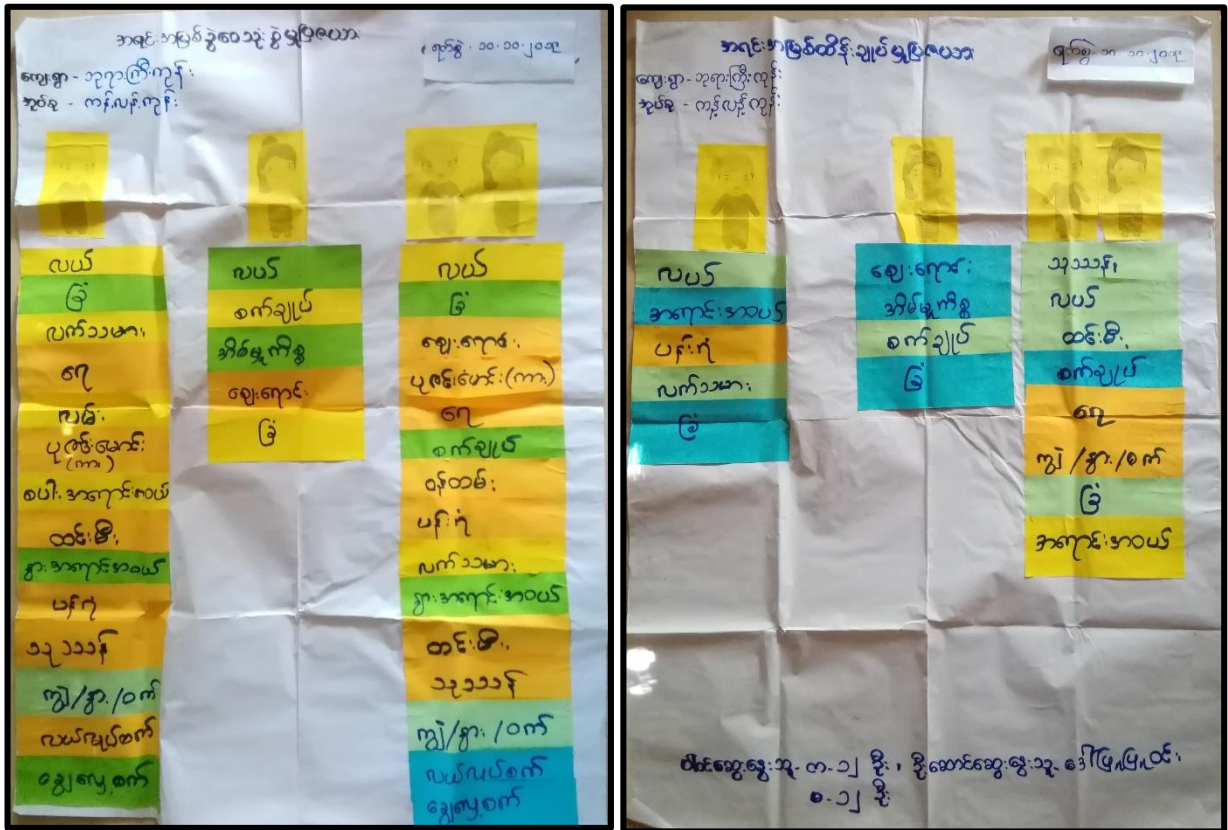 အရင်းအမြစ်ခွဲဝေသုံးစွဲမှုပြဇယား
ရက်စွဲ၊ ၁၀.၁၀.၂၀၁၉
ကျေးရွာ - ဘုရားကြီးကုန်း
အုပ်စု - ကန့်လန့်ကုန်း
လယ်
ခြံ
လက်သမား
ရေ
လမ်း
ပုစဉ်းမောင်း
(ကား)
စပါးအရောင်းဝယ်
ထင်းမီး
နွားအရောင်းအဝယ်
ပန်းရံ
သုဿန်
ကျွဲ/နွား/ဝက်
လယ်လုပ်စက်
ခြွေလှေ့စက်
လယ်
စက်ချုပ်
အိမ်မှုကိစ္စ
ဈေးရောင်း
ခြံ
လယ်
ခြံ
ဈေးရောင်း
ပုစဉ်းမောင်း(ကား)
ရေ
စက်ချုပ်
ဝန်ထမ်း
ပန်းရံ
လက်သမား
နွားအရောင်းအဝယ်
ထင်းမီး
သုဿန်
ကျွဲ/နွား/ဝက်
လယ်လုပ်စက်
ခြွေလှေ့စက်
အရင်းအမြစ်ထိန်းချုပ်မှုပြဇယား
ရက်စွဲ၊ ၁၀.၁၀.၂၀၁၉
ကျေးရွာ - ဘုရားကြီးကုန်း
အုပ်စု - ကန့်လန့်ကုန်း
လယ်
အရောင်းအဝယ်
ပန်းရံ
လက်သမား
ခြံ
ဈေးရောင်း
အိမ်မှုကိစ္စ
စက်ချုပ်
ခြံ
သုဿန်
လယ်
ထင်းမီး
စက်ချုပ်
ရေ
ကျွဲ/နွား/ဝက်
ခြံ
အရောင်းအဝယ်
ပါဝင်ဆွေးနွေးသူ - က - ၁၂ ဦး၊ ဦးဆောင်ဆွေးနွေးသူ - ဒေါ်
မ - ၁၂ ဦး